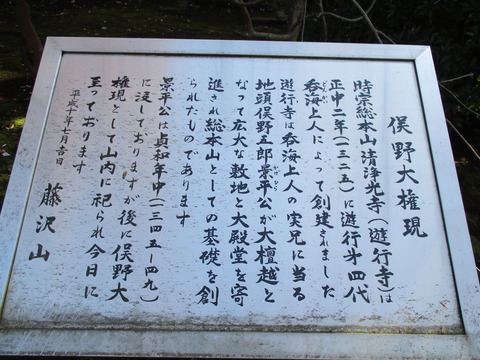 俣野大権現
時宗総本山 清浄光寺(遊行寺)は
正中二年(一三二五)に遊行オ四代
呑海上人によって創建されました
遊行寺は呑海上人の実兄に当る
地頭俣野五郎景平公が大檀越と
なって広大な敷地と大殿堂を寄
進され総本山としての基礎を創
られたものであります
景平公は貞和年中(一三四五-四九)
に没しておりますが後に俣野大
権現として山内に祀られ今日に
至っております
平成十年七月吉日
藤沢山